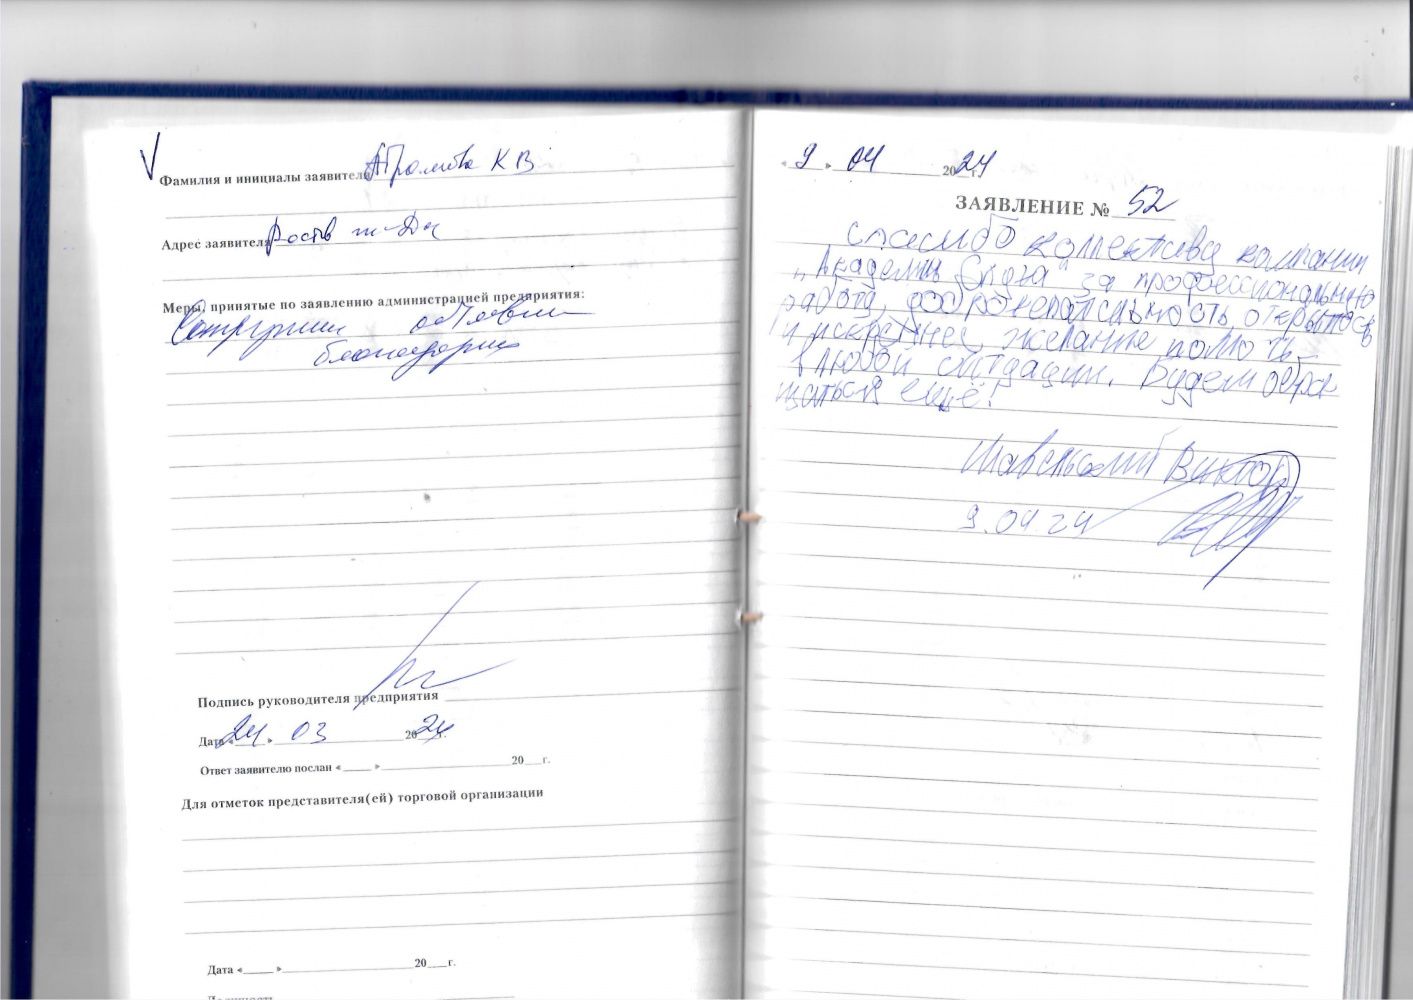 Фамилия и инициалы заявителя К В
Адрес заявителя
Меры, принятые по заявлению администрацией предприятия:
Сотруднику объявлена
благодарность
Подпись руководителя предприятия
Дата « 24 » 03 2024 г.
Ответ заявителю послан «____» ____ 20___г.
Для отметок представителя(ей) торговой организации
Дата «____» ____ 20___г.
Должность
« 9 » 04 2024 г.
ЗАЯВЛЕНИЕ № 52
Спасибо коллективу компании
"Академия Слуха" за профессиональную
работу, доброжелательность, открытость
и искреннее желание помочь
в любой ситуации. Будем обра
щаться ещё!
Виктор
9.04.24